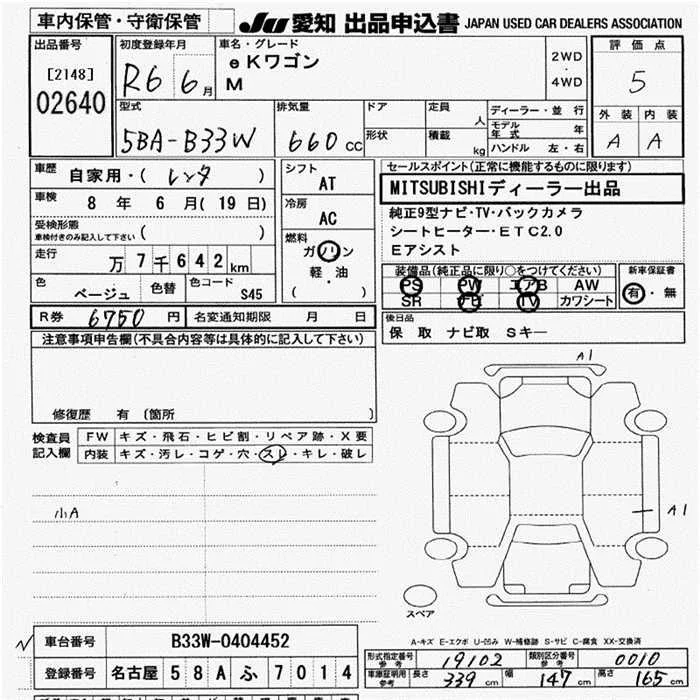 車内保管・守衛保管
JU 愛知 出品申込書 JAPAN USED CAR DEALERS ASSOCIATION
出品番号
[2148]
02640
初度登録年月
R6 6月
車名・グレード
eKワゴン
M
2WD
・
4WD
評価点
5
外装 内装
A A
型式
5BA-B33W
排気量
660 cc
ドア
形状
定員 人
積載 kg
ディーラー・並行
モデル年式 年
ハンドル 左・右
車歴
自家用・( レンタ )
車検
8年 6月(19日)
受検形態
車検付きのみ記入して下さい ( )
走行
万7千642km
色
ベージュ
色替
色コード
S45
シフト
AT
冷房
AC
燃料
ガソリン
軽・油
( )
セールスポイント(正常に機能するものに限ります)
MITSUBISHIディーラー出品
純正9型ナビ・TV・バックカメラ
シートヒーター・ETC2.0
Eアシスト
装備品(純正品に限り○をつけてください)
PS PW エアB AW
SR ナビ TV カワシート
新車保証書
有・無
R券 6750円 名変通知期限 月 日
後日品
保 取 ナビ取 Sキー
注意事項申告欄(不具合内容等は具体的に記入して下さい)
修復歴 有 (箇所 )
検査員記入欄
FW キズ・飛石・ヒビ割・リペア跡・X要
内装 キズ・汚レ・コゲ・穴・スレ・キレ・破レ
小A
A1
A1
スペア
A-キズ E-エクボ U-凹み W-補修跡 S-サビ C-腐食 XX-交換済
車台番号 B33W-0404452
登録番号 名古屋 58A ふ 7014
形式指定番号 参考 19102 類別区分番号 参考 0010
車庫証明用 参考 長さ 339cm 幅 147cm 高さ 165cm